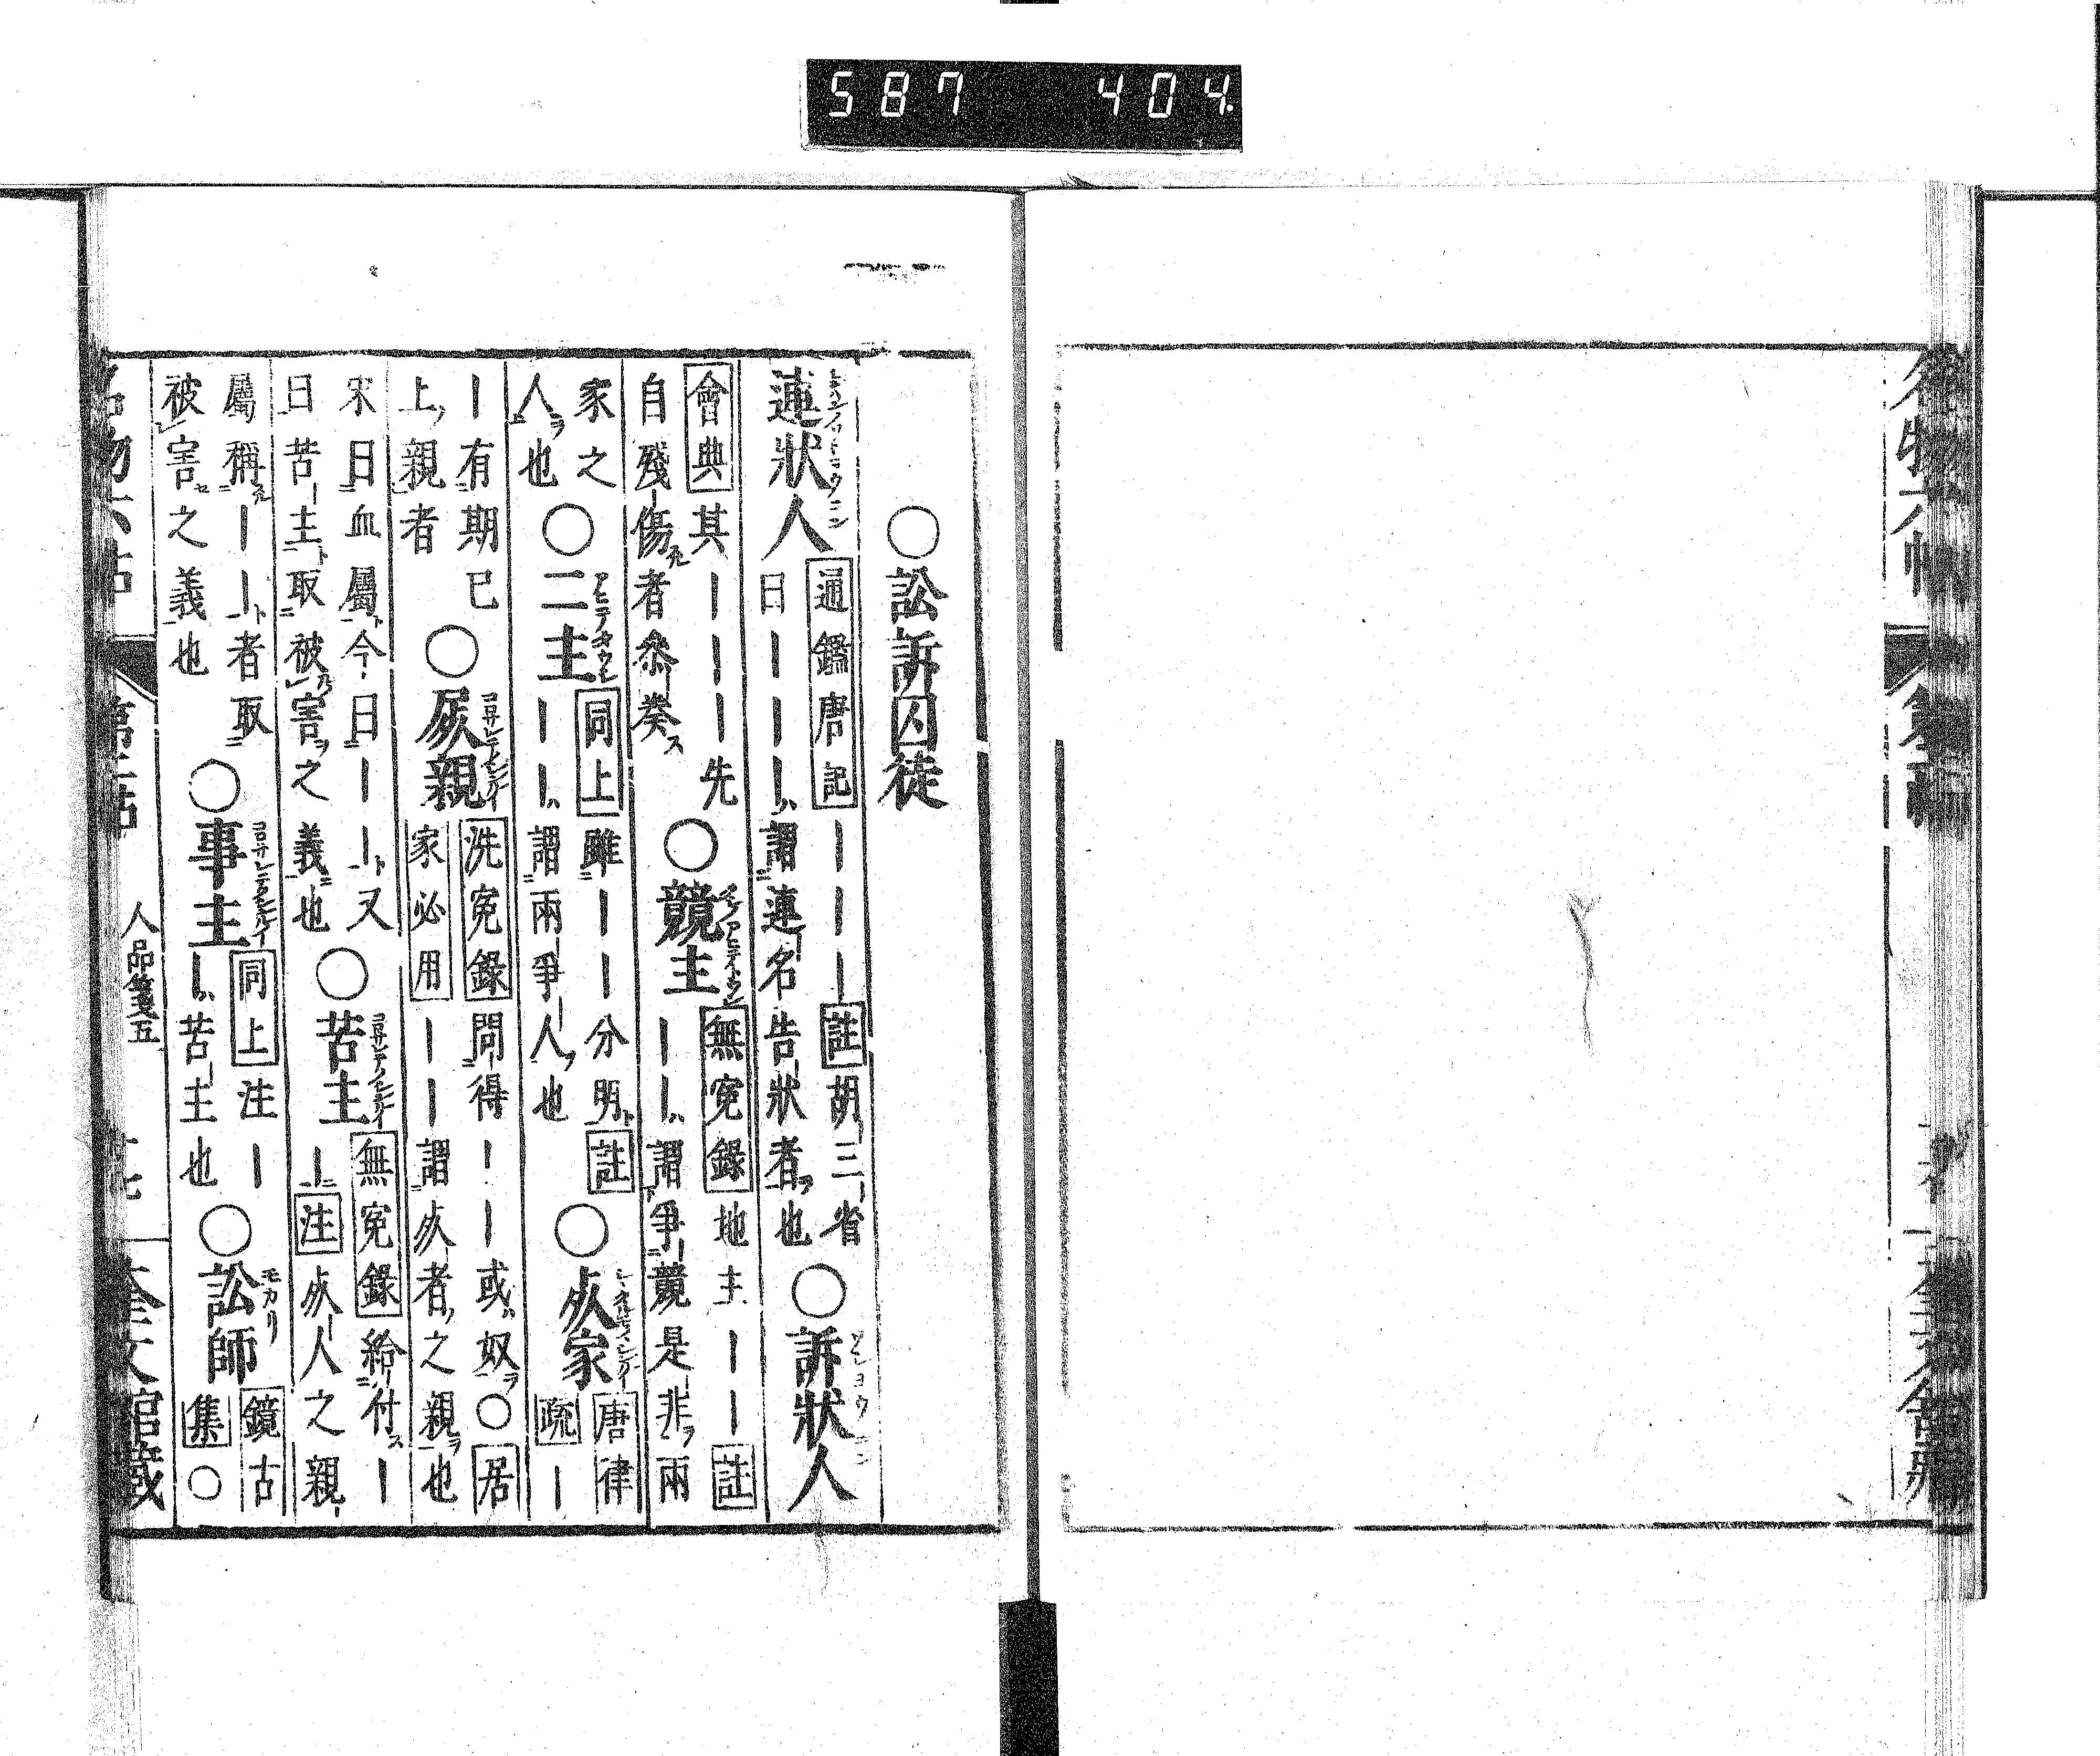 587 404.
名物六帖
○訟訴囚徒
連狀人 通鑑唐記｜｜｜註胡三省
曰｜｜｜謂連名告狀者也 ○訴狀人 ソシヨウニン
會典其｜｜｜先
自殘傷者叅 ○競主 無寃錄地主｜｜註
｜｜謂爭競是非兩
家之
人也 ○二主 同上雖｜｜分明註
｜｜謂兩爭人也 ○死家 唐律
疏｜
｜有期已
上親者 ○屍親 洗寃錄問得｜｜或奴○居
家必用｜｜謂死者之親也
宋曰血屬今曰｜｜又
曰苦主取被害之義也 ○苦主 無寃錄給付｜
｜注死人之親
屬稱｜｜者取
被害之義也 ○事主 同上注｜
｜苦主也 ○訟師 モカリ 鏡古
集○
名物六帖 第二帖 人品箋五 十七 奎文館藏